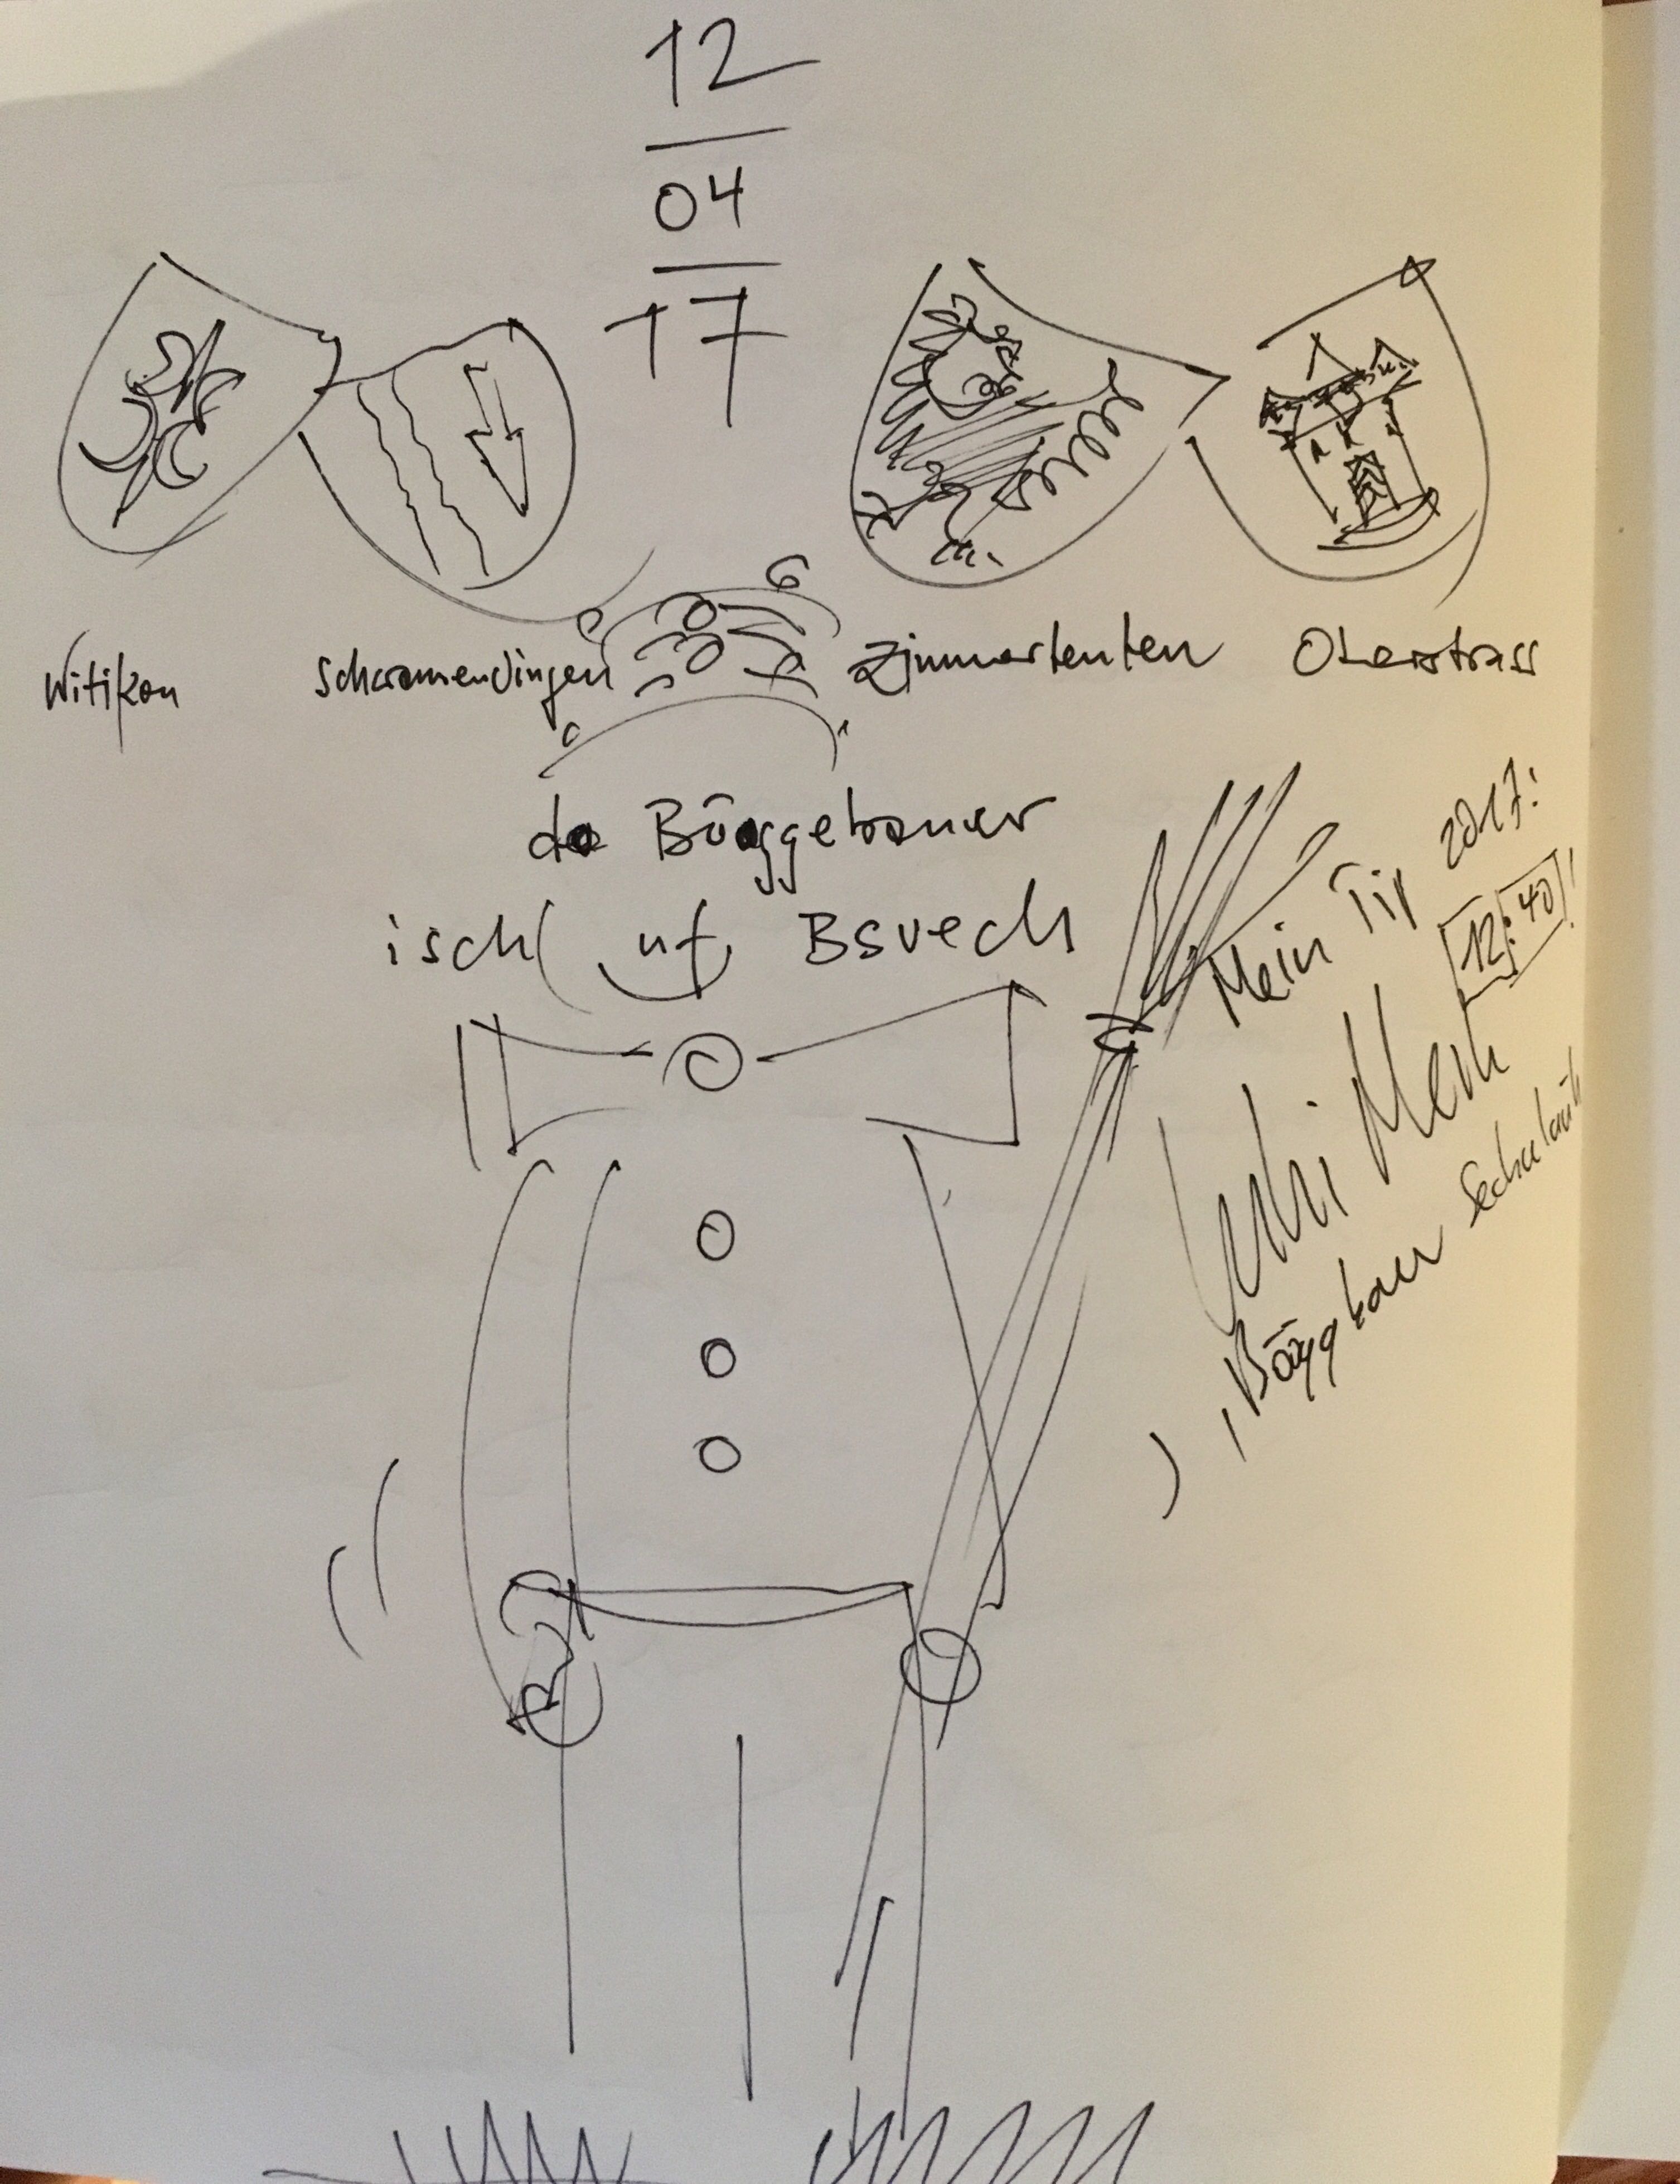 12
04
17
Witikon
Schwamendingen
Zimmerleuten
Oberstrass
de Bööggebauer
isch uf Bsuech
Mein Tip 2017:
12:40!
Bööggbauer